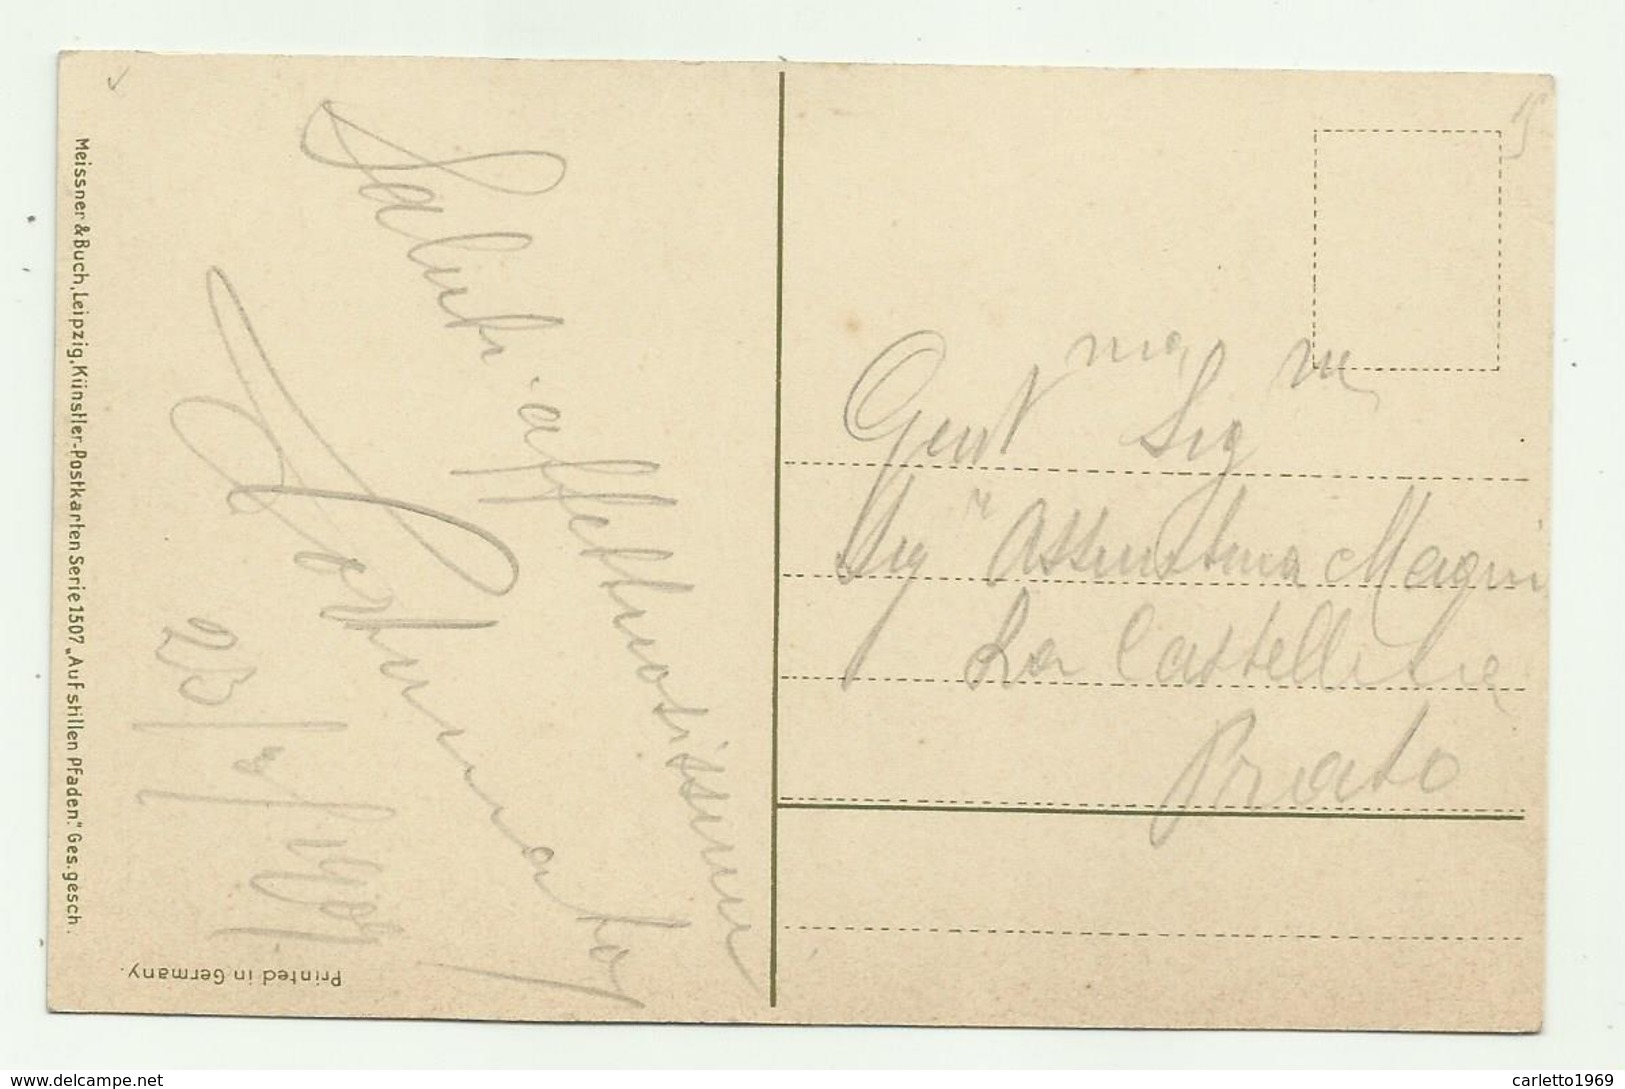 Meissner & Buch, Leipzig, Künstler-Postkarten Serie 1507 „Auf stillen Pfaden." Ges. gesch.
Printed in Germany.
Saluti affettuosissimi
Fortunato
Gent^ma Sig^na
Assuntina Magni
La Castellina
Prato
www.delcampe.net
carletto1969